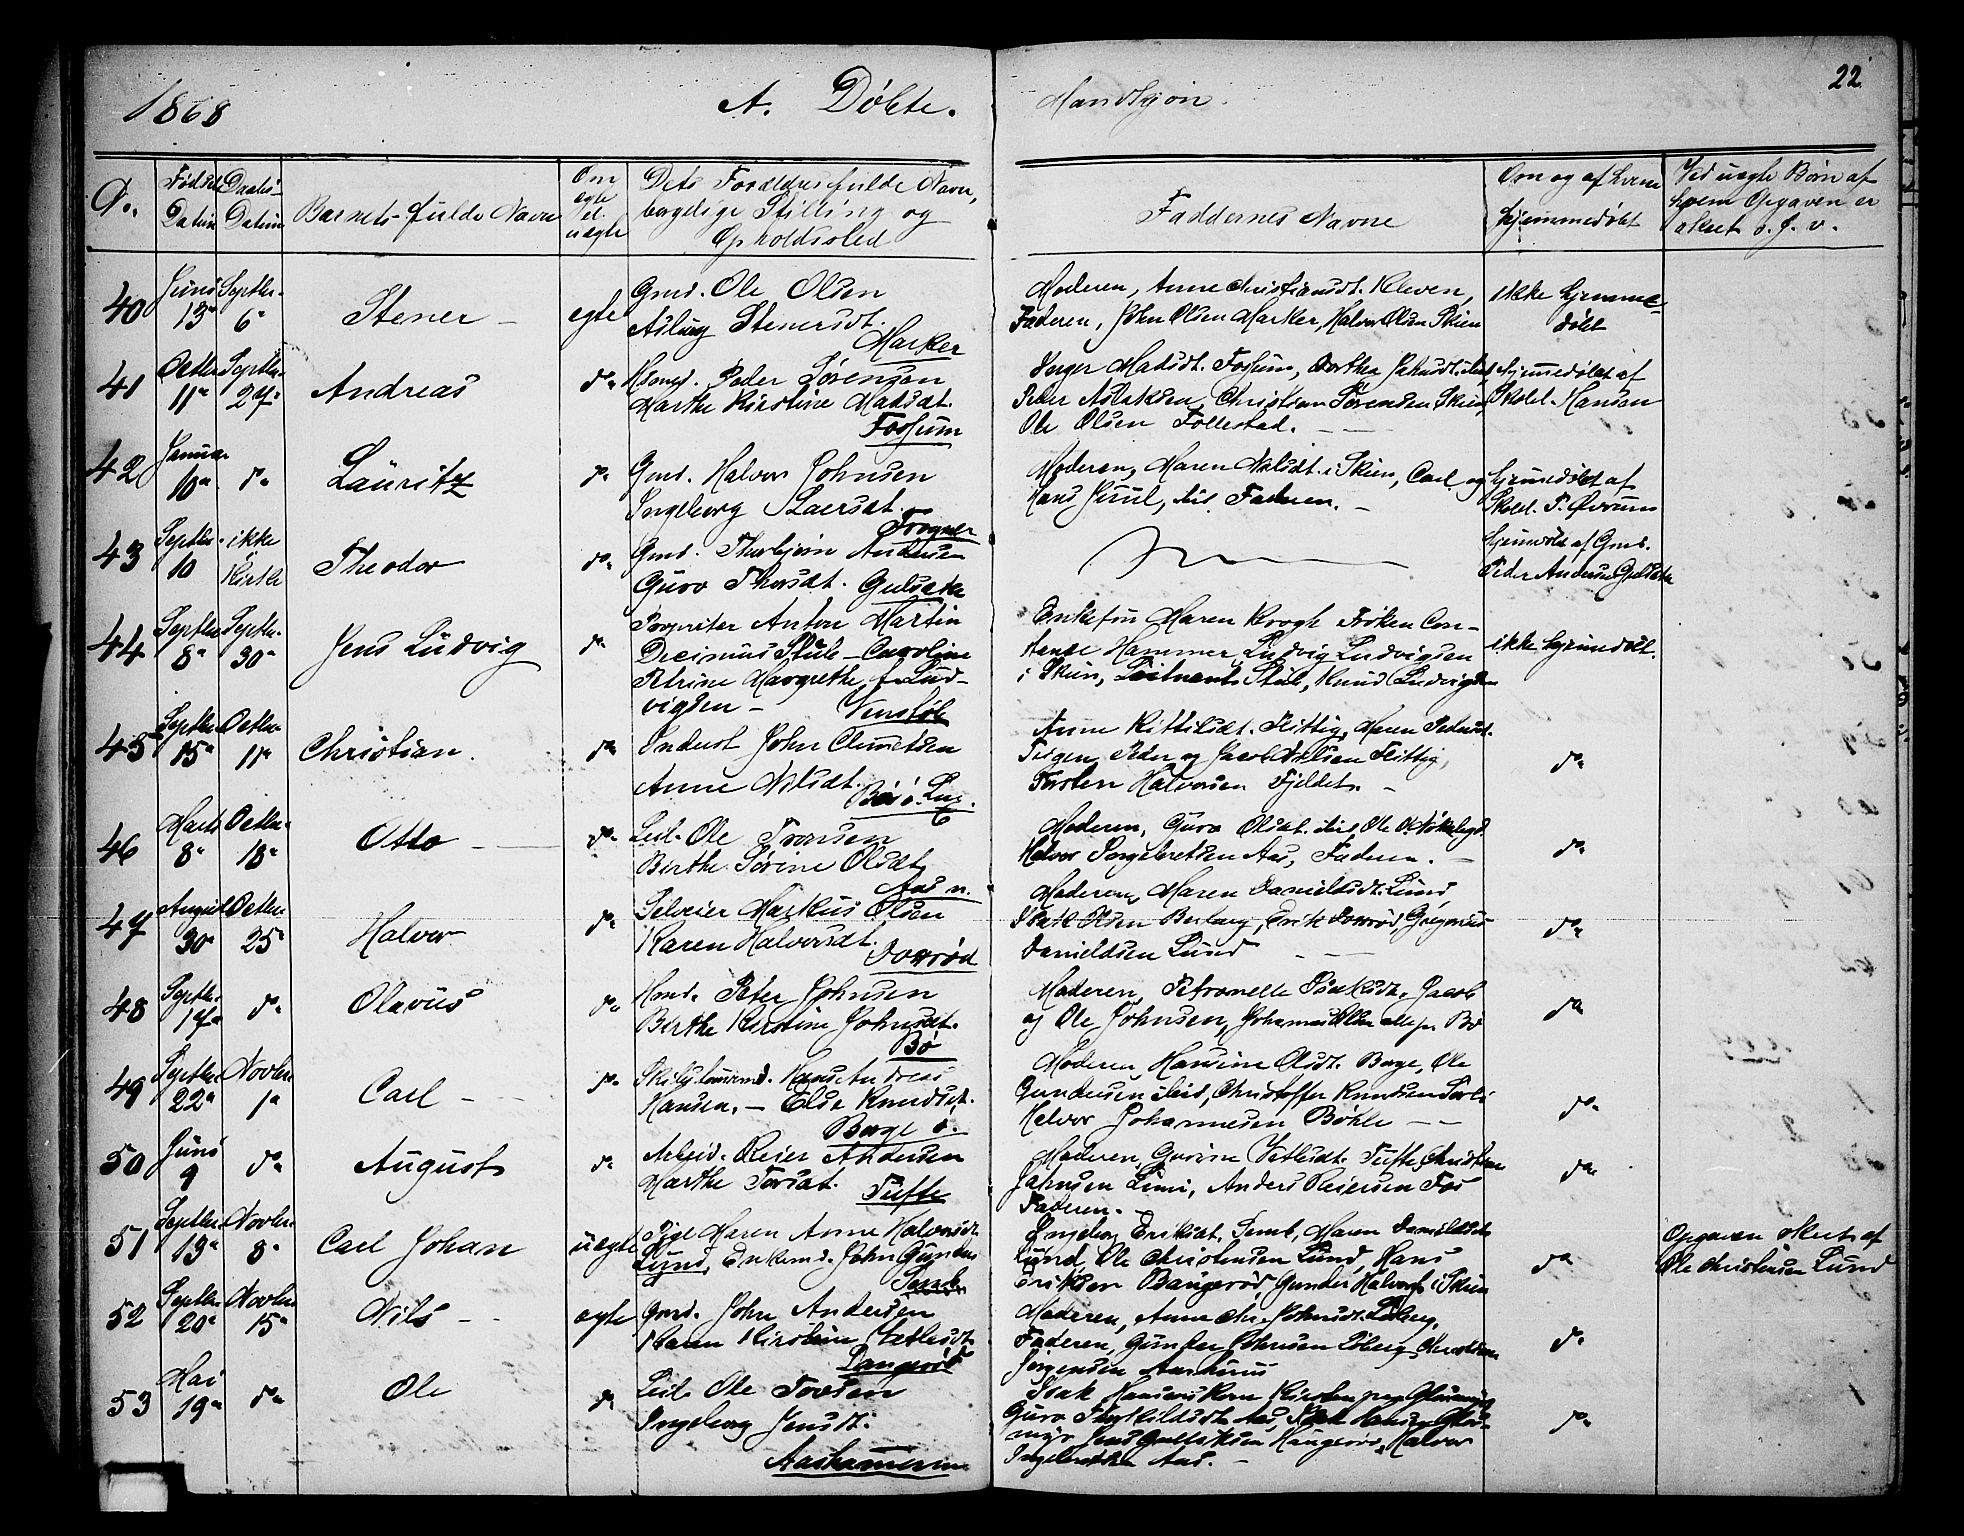 1868
A. Døbte.
Mandkjøn.
22
No.
Fødsels Datum
Daabs Datum
Barnets fulde Navn
Om egte el. uegte
Dets Forældres fulde Navn,
borgelige Stilling og
Opholdssted
Faddernes Navne
Om og af hvem
hjemmedøbt
Ved uegte Børn af
hvem Opgaven er
skeet o. s. v.
40 Juni 13de Septbr. 6te Stener egte
Gmd. Ole Olsen
Aslaug Stenersdt.
Marker
Moderen, Anne Christiansdt. Kleven,
Faderen, John Olsen Marker, Halvor Olsen Skien
ikke hjemme-
døbt
41 Octbr. 11te Septbr. 27de Andreas do
Hsmd. Peder Sørensen
Marthe Kirstine Madsdt.
Fossum
Inger Madsdt. Fossum, Dorthea
Peder Aslaksen, Christian Sørensen Skien,
Ole Olsen Follestad.
hjemmedøbt af
Skolel. Hansen
42 Januar 10de do Lauritz do
Gmd. Halvor Johnsen
Ingeborg Larsdt.
Frogner
Moderen, Maren Nilsdt. i Skien, Carl og
Hans Juul, Faderen.
hjemmedøbt af
Skolel. P. Øvrum
43 Septbr. 10 ikke i Kirke Theodor do
Gmd. Thorbjørn Andersen
Guro Thorsdt. Gulseke
hjemdøbt af Gmd.
Peder Andersen
44 Septbr. 8de Septbr. 30te Jens Ludvig do
Proprietær Anton Martin
Decimus Stub - Caroline
Petrine Margrethe f. Lud-
vigsen - Venstøb
Enkefru Maren Krogh Frøken Con-
stanse Hammer, Ludvig Ludvigsen
i Skien, Leitnant Stub, Knud Ludvigsen
ikke hjemmedøbt.
45 Septbr. 15de Octbr. 11te Christian. do
Inderst John Clemetsen
Anne Nilsdt.
Bøsø.
Anne Kittilsdt. Flittig, Maren Pedersdt.
Teigen, Peder og Jacob Nilsen Flittig,
Torsten Halvorsen Fjeldet.
do
46 Marts 8de Octbr. 18de Otto do
Leil. Ole
Birthe Sørine Olsdt.
Aas n.
Moderen, Guro Olsdt. Ole
Halvor Ingebretsen Aas, Faderen.
do
47 August 30te Octbr. 25de Halvor do
Selveier Markus Olsen
Karen Halvorsdt.
Moderen, Maren Danielsdt. Lund,
Isak Olsen Erik Gregorius
Danielsen Lund
do
48 Septbr. 17de do Olavus do
Hmd. Peter Johnsen
Birthe Kirstine Johnsdt.
Bø
Moderen, Petronelle Isaksdt. Jacob
og Ole Johnsen, Johannes alle paa Bø
do
49 Septbr. 22de Novbr. 1te Carl do
Hans Andreas
Hansen. - Else Knudsdt.
Borge ø.
Moderen, Hansine Olsdt. Borge, Ole
Gundersen Christoffer Knudsen
Halvor Johannesen Bøhle
do
50 Juni 9 do August do
Arbeid. Reier Andersen
Marthe Torsdt. Tufte
Moderen, Gurine Tufte, Christian
Johnsen Anders Reiersen Fos
Faderen.
do
51 Septbr. 13de Novbr. 8de Carl Johan uegte
Pige Maren Anne Halvorsdt.
Lund, Enkemd. John Gunders
Semb
Ingeborg Eriksdt. Semb, Maren Danielsdt.
Lund, Ole Christensen Lund, Hans
Eriksen Baugerød, Gunder Halvors. i Skien
do
Opgaven skeet af
Ole Christensen Lund
52 Septbr. 20de Novbr. 15de Nils egte
Gmd. John Andersen
Karen Kirstine
Langerød
Moderen, Anne Johnsdt. Løberg,
Faderen, Gunder Johnsen Løberg,
Jørgensen
do
53 Mai 19de do Ole do
Leil. Ole Torsen
Ingeborg Jensdt.
Aashammeren
Isak Hansens Kone Kirsten paa
Guro Thorkildsdt. Aas, Isak Hansen
Jens Gullaksen Haugerød, Halvor
Ingebretsen Aas.
do